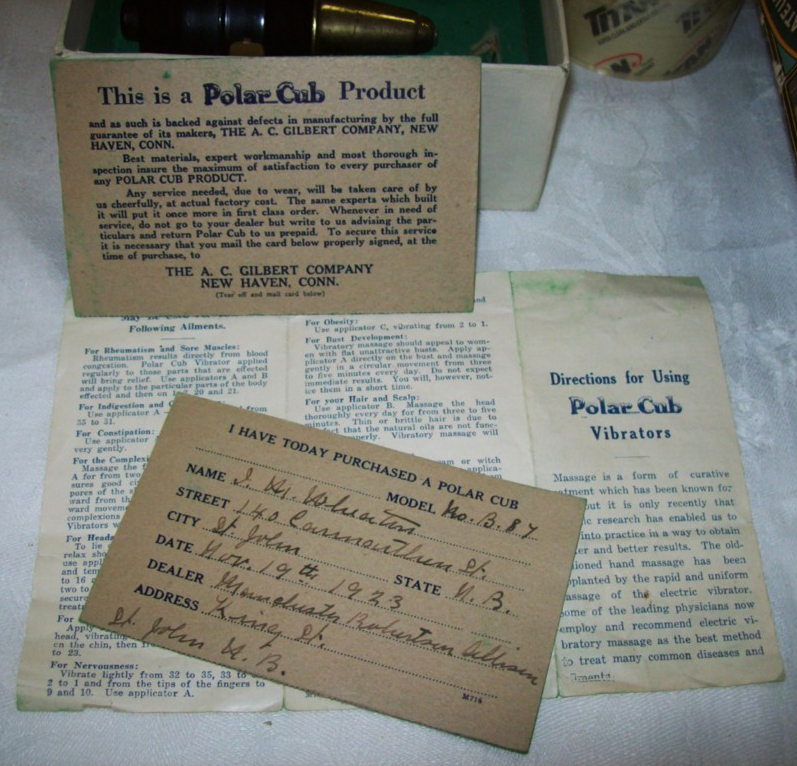 This is a Polar Cub Product
and as such is backed against defects in manufacturing by the full
guarantee of its makers, THE A. C. GILBERT COMPANY, NEW
HAVEN, CONN.
Best materials, expert workmanship and most thorough in-
spection insure the maximum of satisfaction to every purchaser of
any POLAR CUB PRODUCT.
Any service needed, due to wear, will be taken care of by
us cheerfully, at actual factory cost. The same experts which built
it will put it once more in first class order. Whenever in need of
service, do not go to your dealer but write to us advising the par-
ticulars and return Polar Cub to us prepaid. To secure this service
it is necessary that you mail the card below properly signed, at the
time of purchase, to
THE A. C. GILBERT COMPANY
NEW HAVEN, CONN.
(Tear off and mail card below)
TITAN
Following Ailments.
For Rheumatism and Sore Muscles:
Rheumatism results directly from blood
congestion. Polar Cub Vibrator applied
regularly to those parts that are effected
will bring relief. Use applicators A and B
and apply to the particular parts of the body
effected and then on 20 and 21.
For Indigestion and
Use applicator A from
33 to 31.
For Constipation:
Use applicator
very gently.
For the Complex
Massage the
A for from two
sures good ci
pores of the s
ward from th
ward movem
complexions
Vibrators w
For Head
To lie
relax sho
use appl
and tem
to 16
two to
secur
treat
For
Apply
head, vibrating
on the chin, then
to 23.
For Nervousness:
Vibrate lightly from 32 to 35, 33 to
2 to 1 and from the tips of the fingers to
9 and 10. Use applicator A.
and
For Obesity:
Use applicator C, vibrating from 2 to 1.
For Bust Development:
Vibratory massage should appeal to wom-
en with flat unattractive busts. Apply ap-
plicator A directly on the bust and massage
gently in a circular movement from three
to five minutes every day. Do not expect
immediate results. You will, however, not-
ice them in a short time.
For your Hair and Scalp:
Use applicator B. Massage the head
thoroughly every day for from three to five
minutes. Thin or brittle hair is due to
fact that the natural oils are not func-
perly. Vibratory massage will
am or witch
applica-
Directions for Using
Polar Cub
Vibrators
Massage is a form of curative
atment which has been known for
but it is only recently that
c research has enabled us to
into practice in a way to obtain
er and better results. The old-
ioned hand massage has been
pplanted by the rapid and uniform
assage of the electric vibrator.
ome of the leading physicians now
employ and recommend electric vi-
bratory massage as the best method
to treat many common diseases and
ilments.
I HAVE TODAY PURCHASED A POLAR CUB
MODEL No. B. 87
NAME J. W. Wheaton
STREET 140 Carmarthen St.
CITY St John STATE N. B.
DATE Nov. 19th 1923
DEALER Manchester Robertson Allison
ADDRESS King St.
St. John N. B.
M716